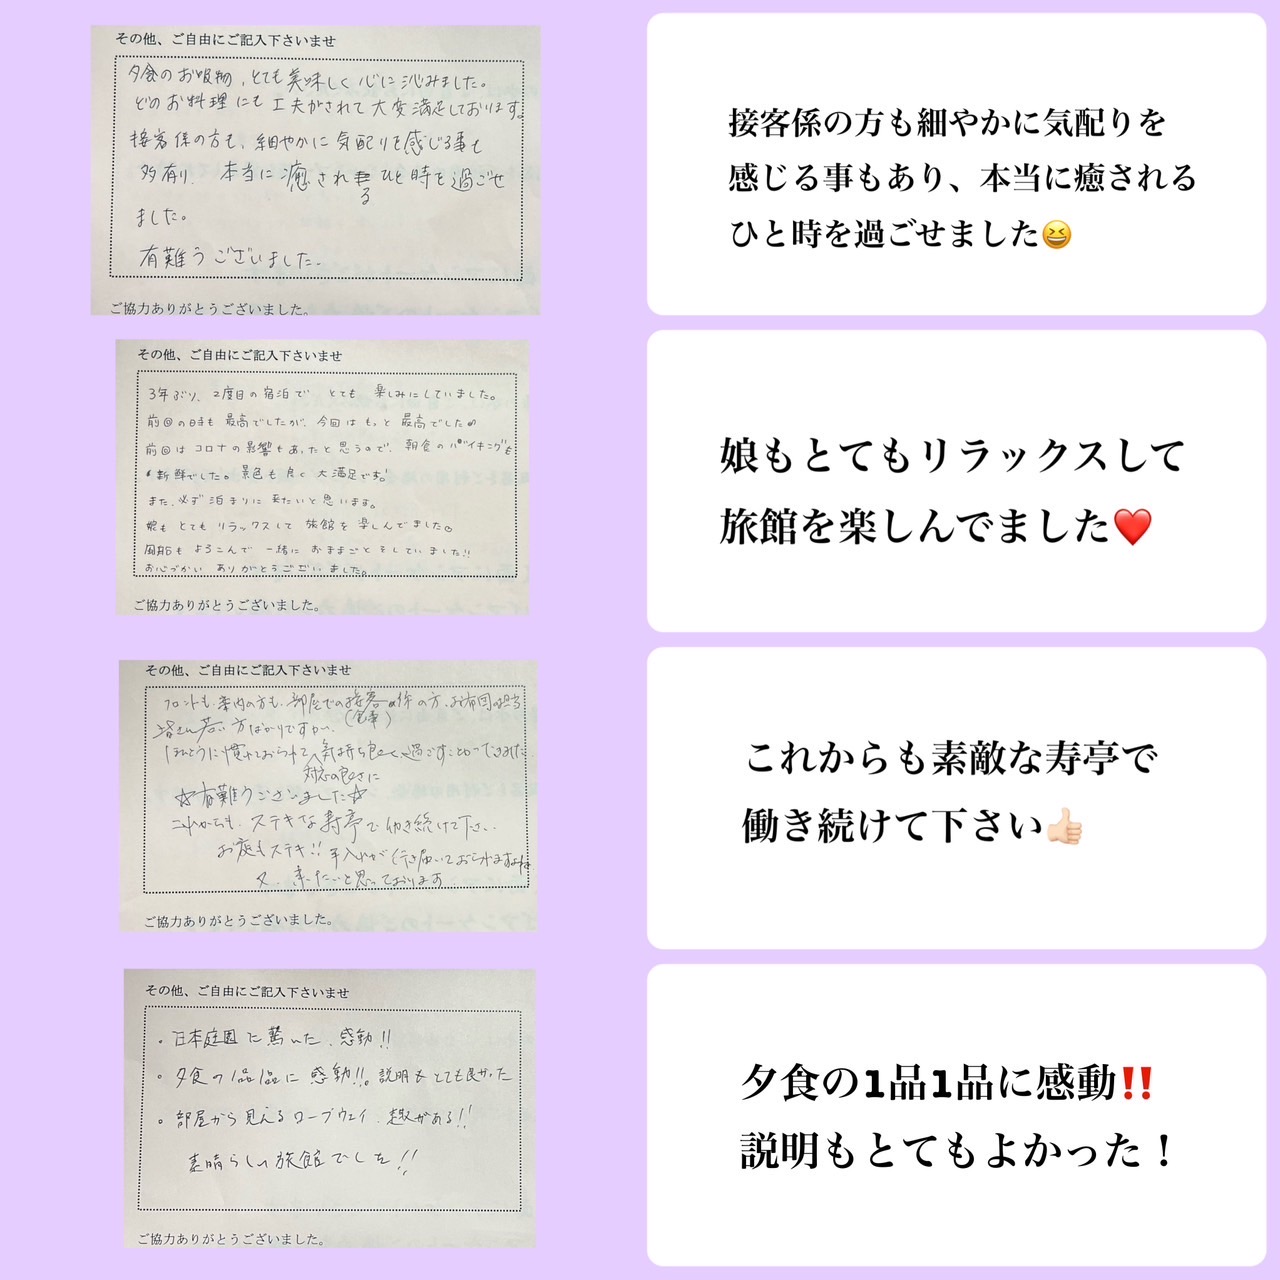 その他、ご自由にご記入下さいませ
夕食のお吸物、とても美味しく心に沁みました。
どのお料理にも工夫がされて大変満足しております。
接客係の方も、細やかに気配りを感じる事も
多有り、本当に癒される ひと時を過ごせ
ました。
有難うございました。
ご協力ありがとうございました。
接客係の方も細やかに気配りを
感じる事もあり、本当に癒される
ひと時を過ごせました😆
その他、ご自由にご記入下さいませ
3年ぶり、2度目の宿泊で とても 楽しみにしていました。
前回の時も 最高でしたが、今回は もっと 最高でした
前回は コロナの影響もあったと思うので、朝食のバイキングも
新鮮でした。景色も良く 大満足です!
また、必ず 泊まりに 来たいと思います。
娘も とても リラックスして 旅館を 楽しんでました
よろこんで 一緒に おままごと をしていました!!
お心づかい ありがとうございました。
ご協力ありがとうございました。
娘もとてもリラックスして
旅館を楽しんでました❤️
その他、ご自由にご記入下さいませ
フロントも、案内の方も、部屋での接客係の方、お布団の担当
(食事)
皆さん若い方ばかりですが、
ほんとうに慣れておられて、気持ち良く過ごすことができました
対応の良さに
☆有難うございました☆
これからも、ステキな寿亭で働き続けて下さい
お庭もステキ!! 手入れが行き届いておられますよね
又、来たいと思っております
ご協力ありがとうございました。
これからも素敵な寿亭で
働き続けて下さい👍🏻
その他、ご自由にご記入下さいませ
・日本庭園に驚いた、感動!!
・夕食の1品1品に 感動!!。説明もとても良かった
・部屋から見えるロープウェイ、趣がある!!
素晴らしい旅館でした!!
ご協力ありがとうございました。
夕食の1品1品に感動‼️
説明もとてもよかった！